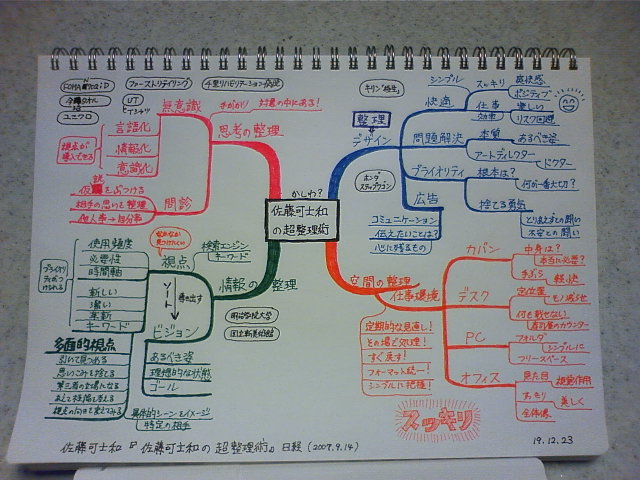 ファーストリテイリング
千里リハビリテーション病院
キリン「極生」
UT
ユニクロ
無意識
手がかり
対象の中にある！
思考の整理
言語化
情報化
意識化
問診
仮説をぶつける
相手の思いを整理
他人事→自分事
かしわ？
佐藤可士和
の超整理術
整理
デザイン
ホンダ
ステップワゴン
快適
シンプル
スッキリ
爽快感
ポジティブ
仕事
効率
楽しい
リスク回避
問題解決
本質
あるべき姿
アートディレクター
ドクター
プライオリティ
根本は？
何が一番大切？
捨てる勇気
とりあえずとの闘い
不安との闘い
広告
コミュニケーション
伝えたいことは？
心に残るもの
情報の整理
視点
検索エンジン
キーワード
使用頻度
必要性
時間軸
新しい
潔い
革新
キーワード
ソート
導き出す
ビジョン
あるべき姿
理想的な状態
ゴール
具体的シーンをイメージ
特定の相手
多面的視点
引いて見つめる
思いこみを捨てる
明治学院大学
国立新美術館
空間の整理
仕事環境
定期的な見直し！
その場で処理！
すぐ戻す！
フォーマット統一！
シンプルに把握！
カバン
中身は？
本当に必要？
手ぶら
軽快
デスク
定位置
モノ減らせ
何も載せない
PC
フォルダ
シンプルに
フリースペース
オフィス
見た目
視覚作用
すっきり
美しく
全体像
スッキリ
佐藤可士和『佐藤可士和の超整理術』日経(2007.9.14)
19.12.23